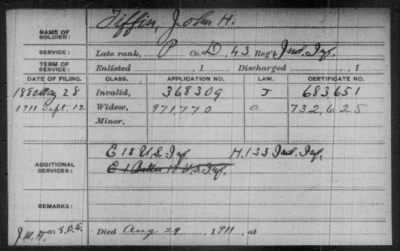 NAME OF SOLDIER: Tiffin, John H.
SERVICE: Late rank, P Co. D, 43 Reg't Ind. Inf.
TERM OF SERVICE: Enlisted , 1 Discharged , 1
DATE OF FILING. CLASS. APPLICATION NO. LAW. CERTIFICATE NO.
1880 May 28 Invalid, 368309 J 683651
1911 Sept. 12 Widow, 971,770 a 732,625
Minor,
ADDITIONAL SERVICES: E 18 U.S. Inf H. 133 Ind. Inf.
E 1 Batln 18 U.S. Inf.
REMARKS:
Died Aug 29, 1911, at